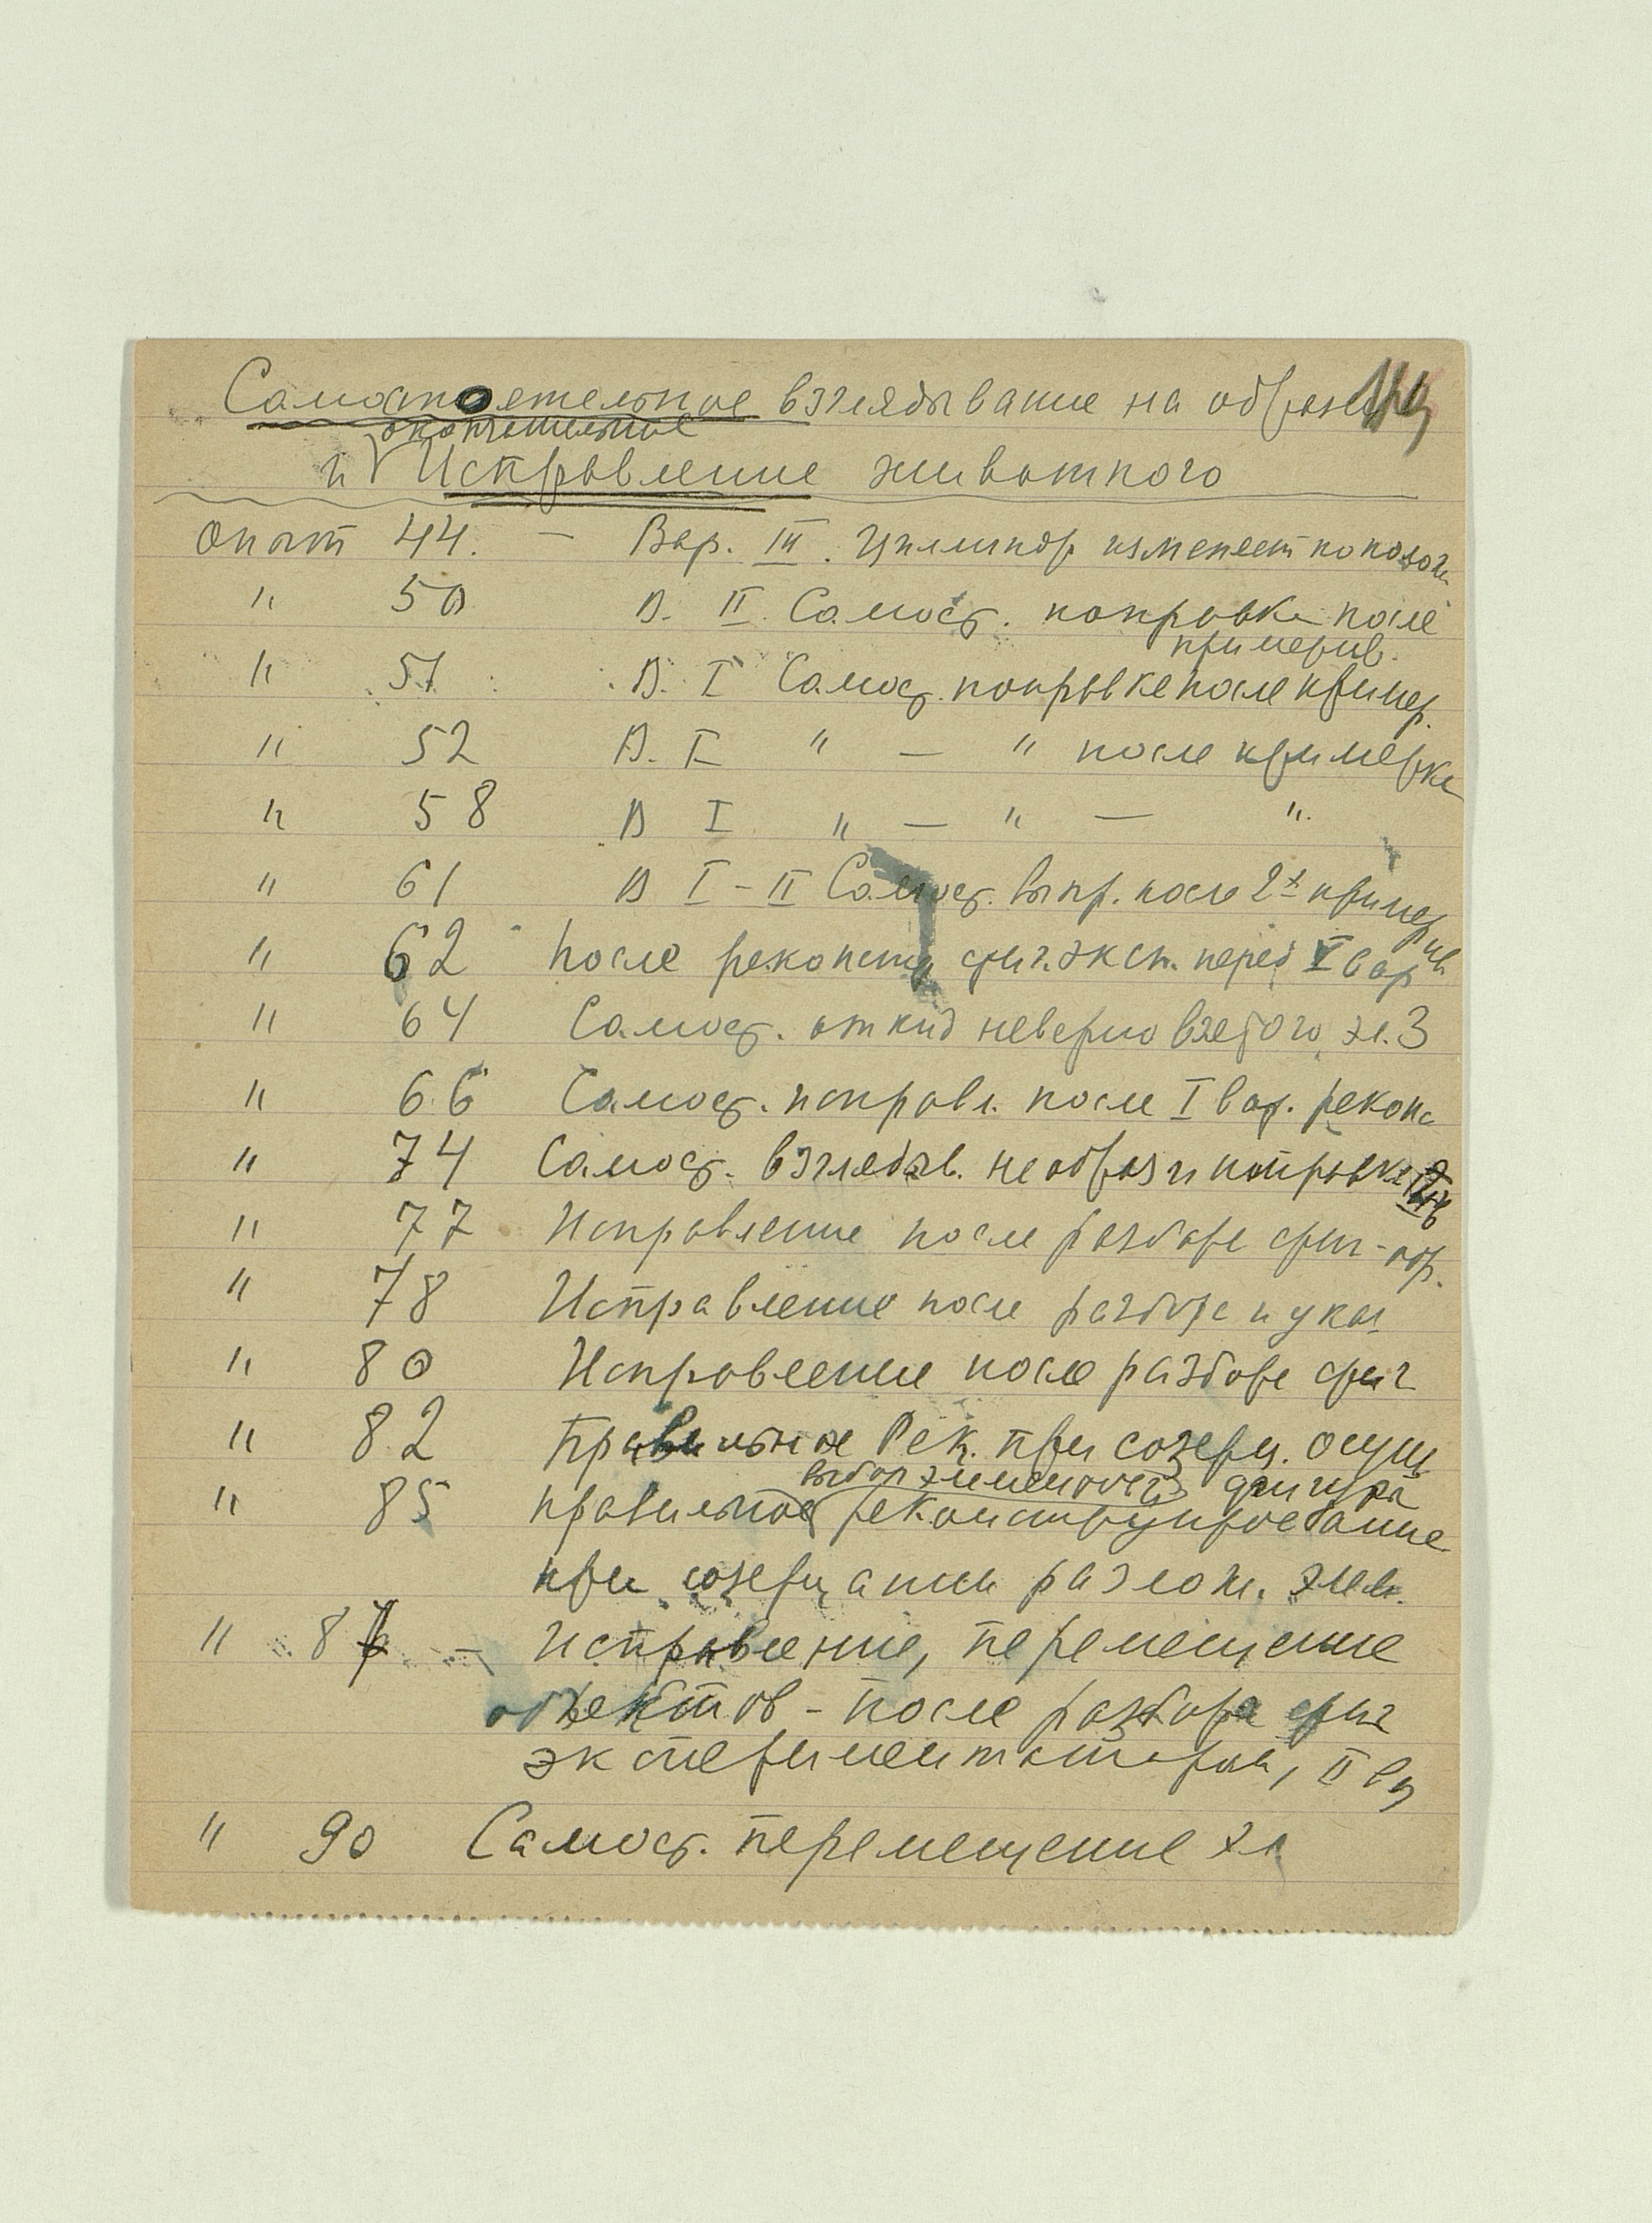 Самостоятельное взглядывание на образец 149
окончательное
и Исправление животного
Опыт 44. — Вар. III. Цилиндр изменяет по полож
" 50 В. II. Самост. поправка после
примерив.
" 51 В. I Самост. поправка после пример.
" 52 В. I " — " после примерки
" 58 В I " — " — "
" 61 В I – II Самост. выпр. после 2х пример
" 62 После реконстр фиг. эксп. перед V вар
" 64 Самост. откид неверно взятого эл. 3
" 66 Самост. исправл. после I вар. реконс
" 74 Самост. взглядыв. на образ и поправка
" 77 Исправление после разбора фиг - обр.
" 78 Исправление после разбора и указ
" 80 Исправление после разбора фиг
" 82 Правильное Рек. при созерц. осущ
выбор элементов фигура
" 85 правильное реконструирование
при созерцании разлож. элем.
" 87 — Исправление, перемещение
объектов – после разбора фиг
экспериментатором, II
" 90 Самост. перемещение эл